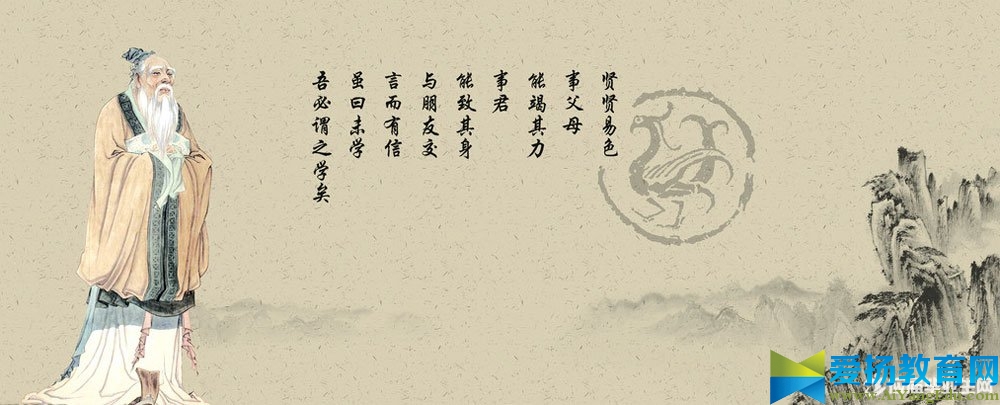 贤贤易色
事父母
能竭其力
事君
能致其身
与朋友交
言而有信
虽曰未学
吾必谓之学矣
爱扬教育网